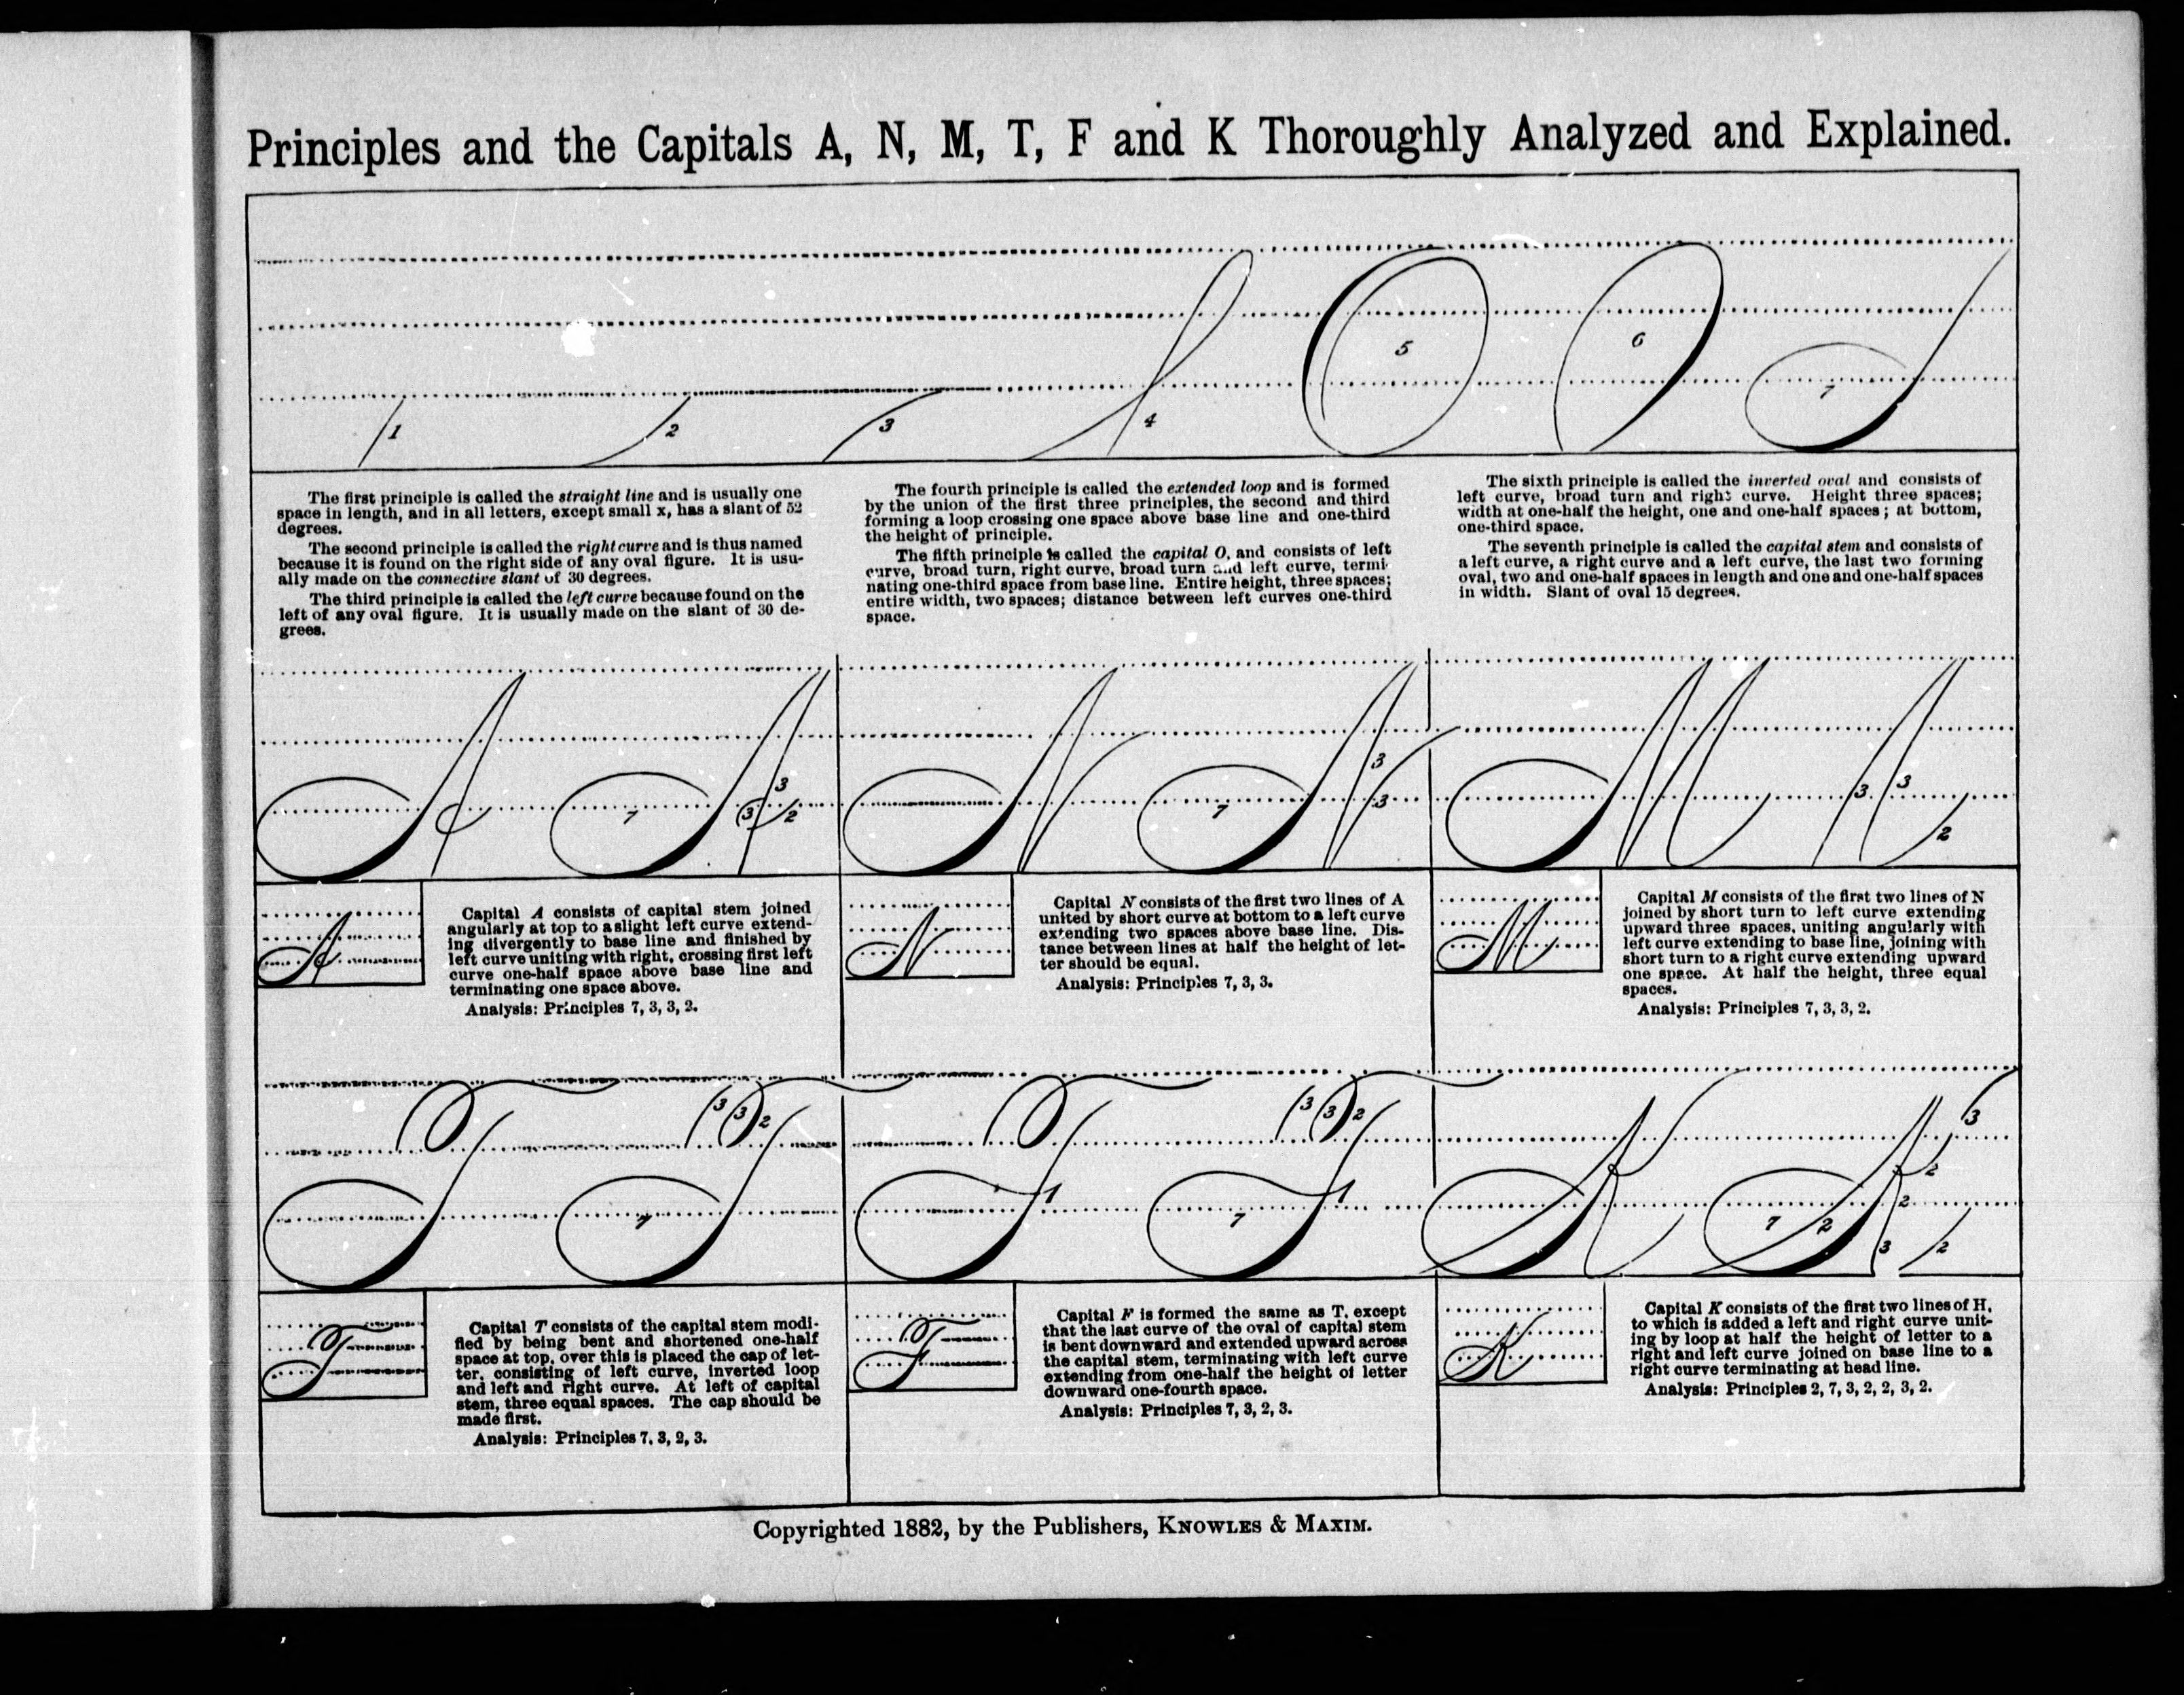 Principles and the Capitals A, N, M, T, F and K Thoroughly Analyzed and Explained.
1
2
3
4
5
6
7
The first principle is called the straight line and is usually one
space in length, and in all letters, except small x, has a slant of 52
degrees.
The second principle is called the right curve and is thus named
because it is found on the right side of any oval figure. It is usu-
ally made on the connective slant of 30 degrees.
The third principle is called the left curve because found on the
left of any oval figure. It is usually made on the slant of 30 de-
grees.
The fourth principle is called the extended loop and is formed
by the union of the first three principles, the second and third
forming a loop crossing one space above base line and one-third
the height of principle.
The fifth principle is called the capital O, and consists of left
curve, broad turn, right curve, broad turn and left curve, termi-
nating one-third space from base line. Entire height, three spaces;
entire width, two spaces; distance between left curves one-third
space.
The sixth principle is called the inverted oval and consists of
left curve, broad turn and right curve. Height three spaces;
width at one-half the height, one and one-half spaces; at bottom,
one-third space.
The seventh principle is called the capital stem and consists of
a left curve, a right curve and a left curve, the last two forming
oval, two and one-half spaces in length and one and one-half spaces
in width. Slant of oval 15 degrees.
A A 7 3 3 2
N N 7 3 3
M 3 3 2
A
Capital A consists of capital stem joined
angularly at top to a slight left curve extend-
ing divergently to base line and finished by
left curve uniting with right, crossing first left
curve one-half space above base line and
terminating one space above.
Analysis: Principles 7, 3, 3, 2.
N
Capital N consists of the first two lines of A
united by short curve at bottom to a left curve
extending two spaces above base line. Dis-
tance between lines at half the height of let-
ter should be equal.
Analysis: Principles 7, 3, 3.
M
Capital M consists of the first two lines of N
joined by short turn to left curve extending
upward three spaces, uniting angularly with
left curve extending to base line, joining with
short turn to a right curve extending upward
one space. At half the height, three equal
spaces.
Analysis: Principles 7, 3, 3, 2.
T T 3 3 2 7
F F 3 3 2 7 1
K K 7 2 3 2 2 3 2
T
Capital T consists of the capital stem modi-
fied by being bent and shortened one-half
space at top, over this is placed the cap of let-
ter, consisting of left curve, inverted loop
and left and right curve. At left of capital
stem, three equal spaces. The cap should be
made first.
Analysis: Principles 7, 3, 2, 3.
F
Capital F is formed the same as T, except
that the last curve of the oval of capital stem
is bent downward and extended upward across
the capital stem, terminating with left curve
extending from one-half the height of letter
downward one-fourth space.
Analysis: Principles 7, 3, 2, 3.
K
Capital K consists of the first two lines of H,
to which is added a left and right curve unit-
ing by loop at half the height of letter to a
right and left curve joined on base line to a
right curve terminating at head line.
Analysis: Principles 2, 7, 3, 2, 2, 3, 2.
Copyrighted 1882, by the Publishers, KNOWLES & MAXIM.